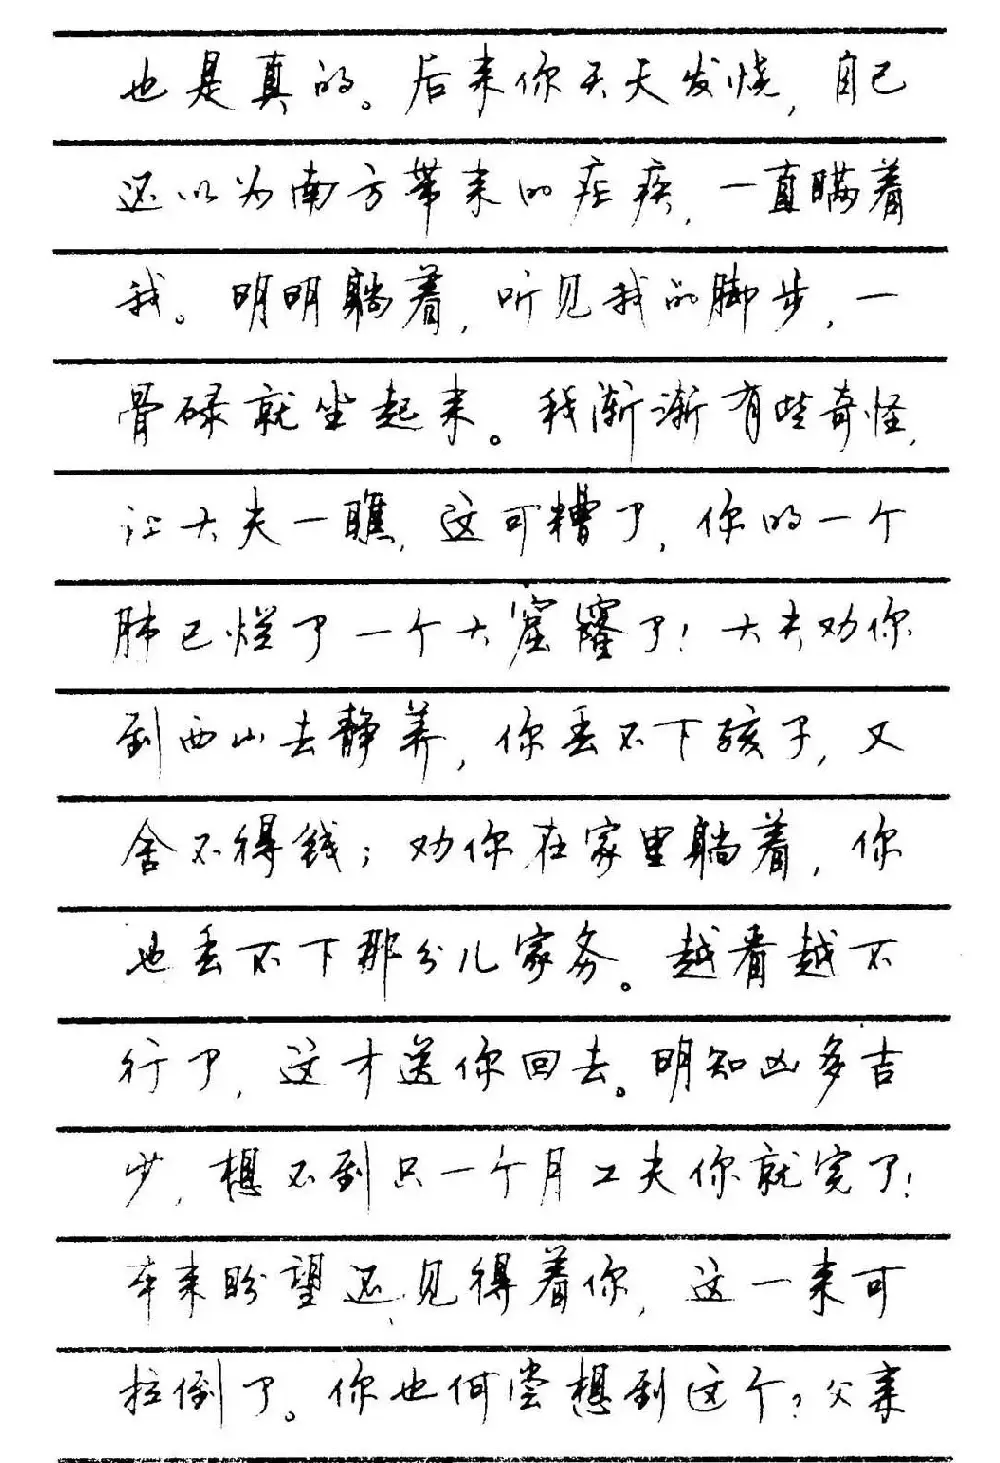 也是真的。后来你天天发烧,自己
还以为南方带来的疟疾,一直瞒着
我。明明躺着,听见我的脚步,一
骨碌就坐起来。我渐渐有些奇怪,
让大夫一瞧,这可糟了,你的一个
肺已烂了一个大窟窿了!大夫劝你
到西山去静养,你丢不下孩子,又
舍不得钱;劝你在家里躺着,你
也丢不下那分儿家务。越看越不
行了,这才送你回去。明知凶多吉
少,想不到只一个月工夫你就完了!
本来盼望还见得着你,这一来可
拉倒了。你也何尝想到这个?父亲